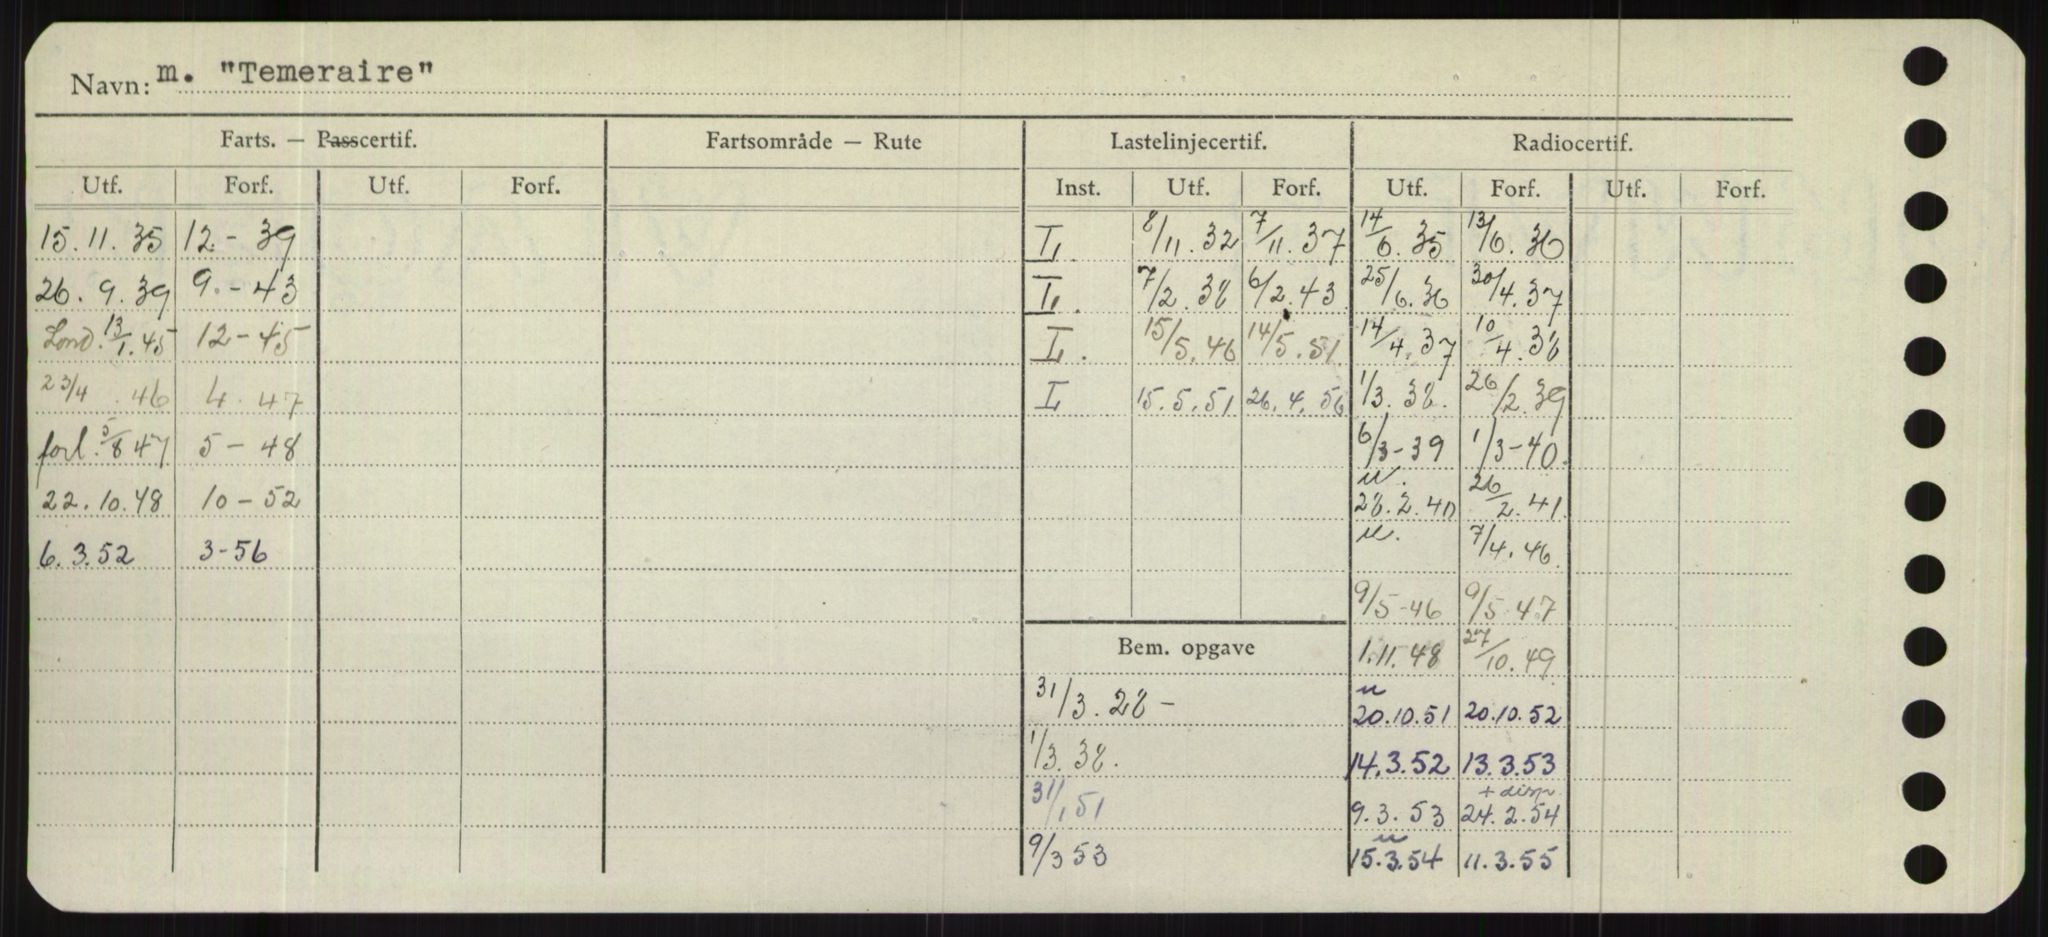 Navn: m. "Temeraire"
Farts. — Passcertif. Fartsområde — Rute Lastelinjecertif. Radiocertif.
Utf. Forf. Utf. Forf. Inst. Utf. Forf. Utf. Forf. Utf. Forf.
15.11.35 12 - 39 I. 8/11.32 7/11.37 14/6.35 13/6.36
26.9.39 9. - 43 I. 7/2.38 6/2.43 25/6.36 30/4.37
Lond. 13/1.45 12 - 45 I. 15/5.46 14/5.51 14/4.37 10/4.38
23/4.46 4.47 I 15.5.51 26.4.56 1/3.38. 26/2.39
forl. 5/8 47 5 - 48 6/3-39 1/3-40.
22.10.48 10 - 52 u. 28.2.40 26/2.41.
6.3.52 3-56 u. 7/4.46.
9/5-46 9/5 47
Bem. opgave 1.11.48 27/10.49
31/3.28 - u 20.10.51 20.10.52
1/3.38. 14.3.52 13.3.53
31/1 51 9.3.53 + disp. 24.2.54
9/3 53 u 15.3.54 11.3.55